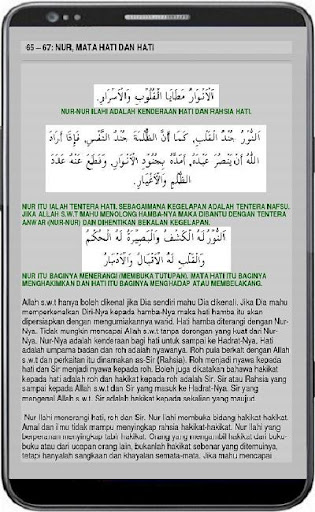 65 – 67: NUR, MATA HATI DAN HATI
اَلْاَنْوَارُ مَطَايَا الْقُلُوْبِ وَالْاَسْرَارِ.
NUR-NUR ILAHI ADALAH KENDERAAN HATI DAN RAHSIA HATI.
اَلنُّوْرُ جُنْدُ الْقَلْبِ, كَمَا أَنَّ الظُّلْمَةَ جُنْدُ النَّفْسِ, فَإِذَا أَرَادَ
اللهُ أَنْ يَنْصُرَ عَبْدَهُ, أَمَدَّهُ بِجُنُوْدِ الْاَنْوَارِ, وَقَطَعَ عَنْهُ مَدَدَ
الظُّلَمِ وَالْاَغْيَارِ.
NUR ITU IALAH TENTERA HATI, SEBAGAIMANA KEGELAPAN ADALAH TENTERA NAFSU.
JIKA ALLAH S.W.T MAHU MENOLONG HAMBA-NYA MAKA DIBANTU DENGAN TENTERA
ANWAR (NUR-NUR) DAN DIHENTIKAN BEKALAN KEGELAPAN.
اَلنُّوْرُ لَهُ الْكَشْفُ وَالْبَصِيْرَةُ لَهُ الْحُكْمُ
وَالْقَلْبُ لَهُ الْاِقْبَالُ وَالْاِدْبَارُ
NUR ITU BAGINYA MENERANGI (MEMBUKA TUTUPAN). MATA HATI ITU BAGINYA
MENGHAKIMKAN DAN HATI ITU BAGINYA MENGHADAP ATAU MEMBELAKANG.
Allah s.w.t hanya boleh dikenal jika Dia sendiri mahu Dia dikenali. Jika Dia mahu
memperkenalkan Diri-Nya kepada hamba-Nya maka hati hamba itu akan
dipersiapkan dengan mengurniakannya warid. Hati hamba diterangi dengan Nur-
Nya. Tidak mungkin mencapai Allah s.w.t tanpa dorongan yang kuat dari Nur-
Nya. Nur-Nya adalah kenderaan bagi hati untuk sampai ke Hadrat-Nya. Hati
adalah umpama badan dan roh adalah nyawanya. Roh pula berkait dengan Allah
s.w.t dan perkaitan itu dinamakan as-Sir (Rahsia). Roh menjadi nyawa kepada
hati dan Sir menjadi nyawa kepada roh. Boleh juga dikatakan bahawa hakikat
kepada hati adalah roh dan hakikat kepada roh adalah Sir. Sir atau Rahsia yang
sampai kepada Allah s.w.t dan Sir yang masuk ke Hadrat-Nya. Sir yang
mengenal Allah s.w.t. Sir adalah hakikat kepada sekalian yang maujud.
Nur Ilahi menerangi hati, roh dan Sir. Nur Ilahi membuka bidang hakikat-hakikat.
Amal dan ilmu tidak mampu menyingkap rahsia hakikat-hakikat. Nur Ilahi yang
berperanan menyingkap tabir hakikat. Orang yang mengambil hakikat dari buku-
buku atau dari ucapan orang lain, bukanlah hakikat sebenar yang ditemuinya,
tetapi hanyalah sangkaan dan khayalan semata-mata. Jika mahu mencapai